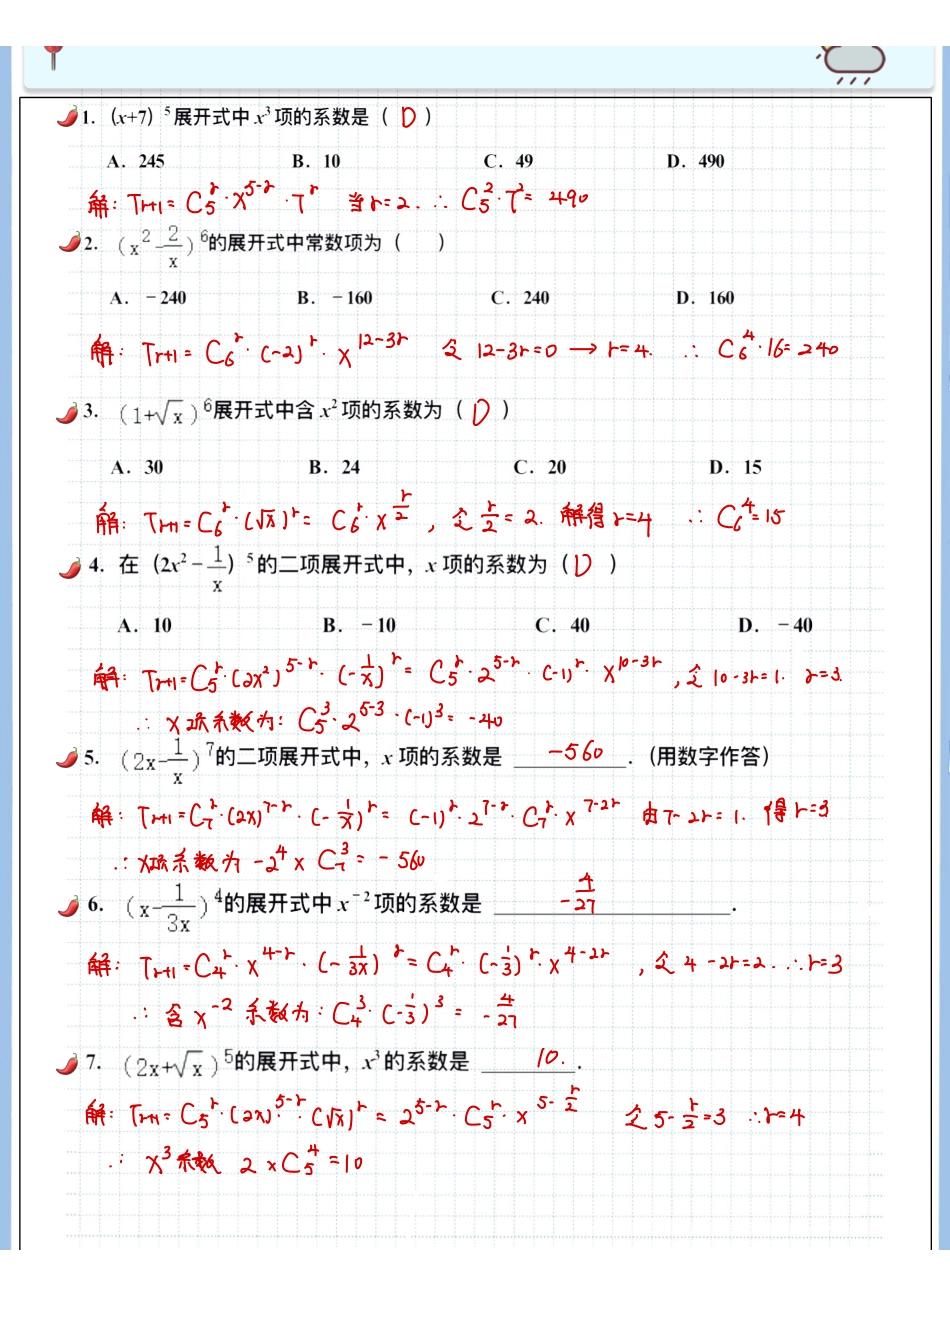 1.（x+7）⁵展开式中 x³ 项的系数是（ D ）
A．245 B．10 C．49 D．490
解: Tr+1 = C₅ʳ·x⁵⁻ʳ·7ʳ 当r=2. ∴ C₅²·7²= 490
2.（x²-2/x）⁶的展开式中常数项为（ ）
A．－240 B．－160 C．240 D．160
解: Tr+1 = C₆ʳ·(-2)ʳ·x¹²⁻³ʳ 令 12-3r=0 → r=4. ∴ C₆⁴·16=240
3.（1+√x）⁶展开式中含 x² 项的系数为（ D ）
A．30 B．24 C．20 D．15
解: Tr+1= C₆ʳ·(√x)ʳ= C₆ʳ·x^(r/2), 令 r/2 = 2. 解得 r=4 ∴ C₆⁴=15
4．在（2x²－1/x）⁵的二项展开式中，x 项的系数为（ D ）
A．10 B．－10 C．40 D．－40
解: Tr+1=C₅ʳ·(2x²)⁵⁻ʳ·(-1/x)ʳ= C₅ʳ·2⁵⁻ʳ·(-1)ʳ·x¹⁰⁻³ʳ, 令 10-3r=1. r=3.
∴ x项系数为: C₅³·2⁵⁻³·(-1)³= -40
5.（2x-1/x）⁷的二项展开式中，x 项的系数是 -560 .（用数字作答）
解: Tr+1=C₇ʳ·(2x)⁷⁻ʳ·(-1/x)ʳ= (-1)ʳ·2⁷⁻ʳ·C₇ʳ·x⁷⁻²ʳ 由7-2r=1. 得r=3
∴ x项系数为 -2⁴×C₇³= -560
6.（x-1/3x）⁴的展开式中 x⁻² 项的系数是 -4/27 .
解: Tr+1=C₄ʳ·x⁴⁻ʳ·(-1/3x)ʳ=C₄ʳ·(-1/3)ʳ·x⁴⁻²ʳ, 令 4-2r=2. ∴r=3
∴ 含x⁻²系数为: C₄³·(-1/3)³= -4/27
7.（2x+√x）⁵的展开式中，x³ 的系数是 10. .
解: Tr+1= C₅ʳ·(2x)⁵⁻ʳ·(√x)ʳ = 2⁵⁻ʳ·C₅ʳ·x^(5-r/2) 令5-r/2=3 ∴r=4
∴ x³系数 2×C₅⁴=10